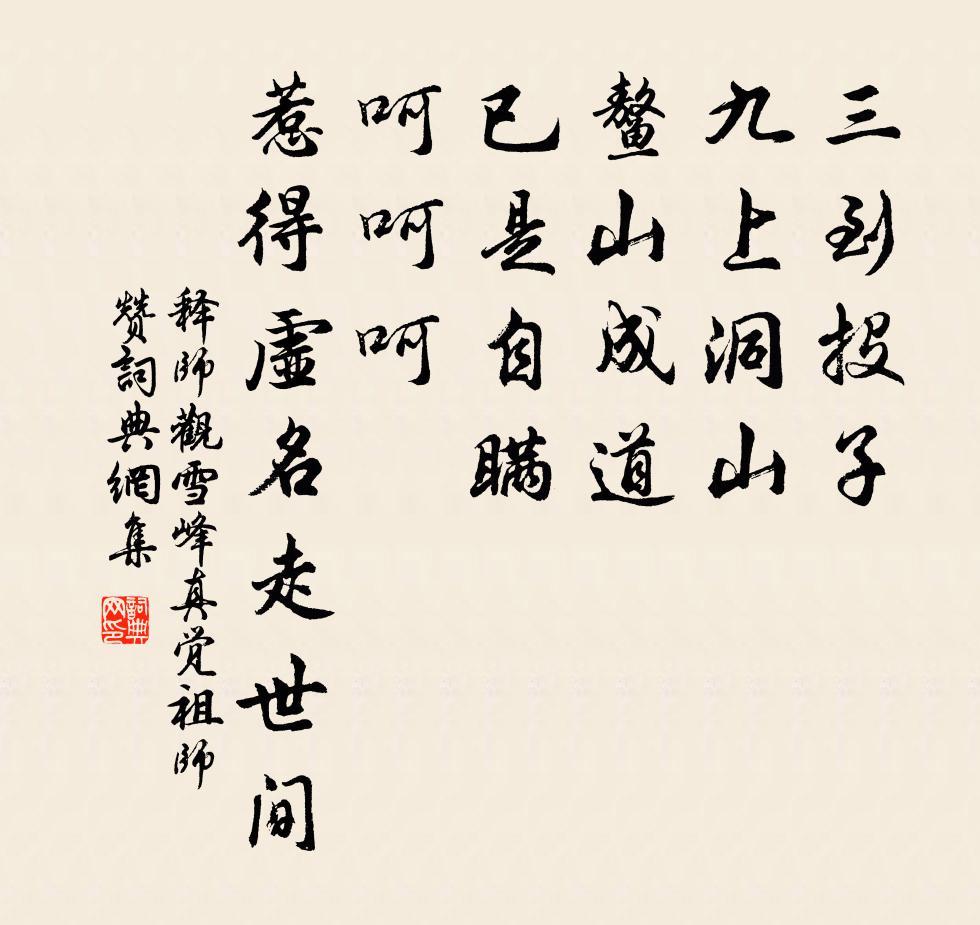 三到投子
九上洞山
鳌山成道
已是自瞞
呵呵呵
惹得虛名走世间
释师觀雪峰真觉祖师
赞詞典網集
詞典网印